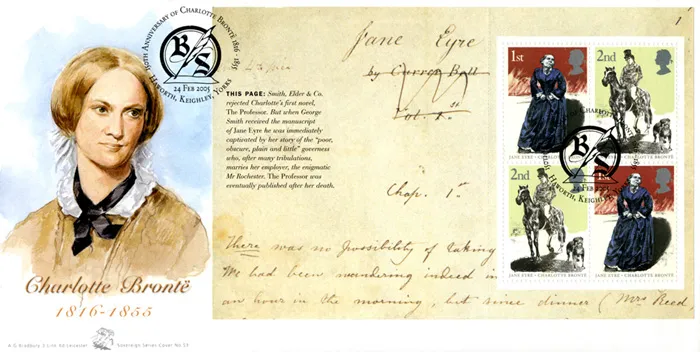 150TH ANNIVERSARY OF CHARLOTTE BRONTË 1816 - 1855
B S
24 FEB 2005
HAWORTH, KEIGHLEY, YORKS
1
Jane Eyre
by Currer Bell
Vol. 1.
THIS PAGE: Smith, Elder & Co.
rejected Charlotte's first novel,
The Professor. But when George
Smith received the manuscript
of Jane Eyre he was immediately
captivated by her story of the "poor,
obscure, plain and little" governess
who, after many tribulations,
marries her employer, the enigmatic
Mr Rochester. The Professor was
eventually published after her death.
Chap. 1st
There was no possibility of taking
We had been wandering indeed in
an hour in the morning, but since dinner (Mrs Reed,
1st
2nd
JANE EYRE : CHARLOTTE BRONTË
JANE EYRE : CHARLOTTE BRONTË
CHARLOTTE
B S
24 FEB 2005
HAWORTH, KEIGHLEY, YORKS
2nd
1st
JANE EYRE : CHARLOTTE BRONTË
JANE EYRE : CHARLOTTE BRONTË
Charlotte Brontë
1816-1855
Sovereign Series Cover No 57